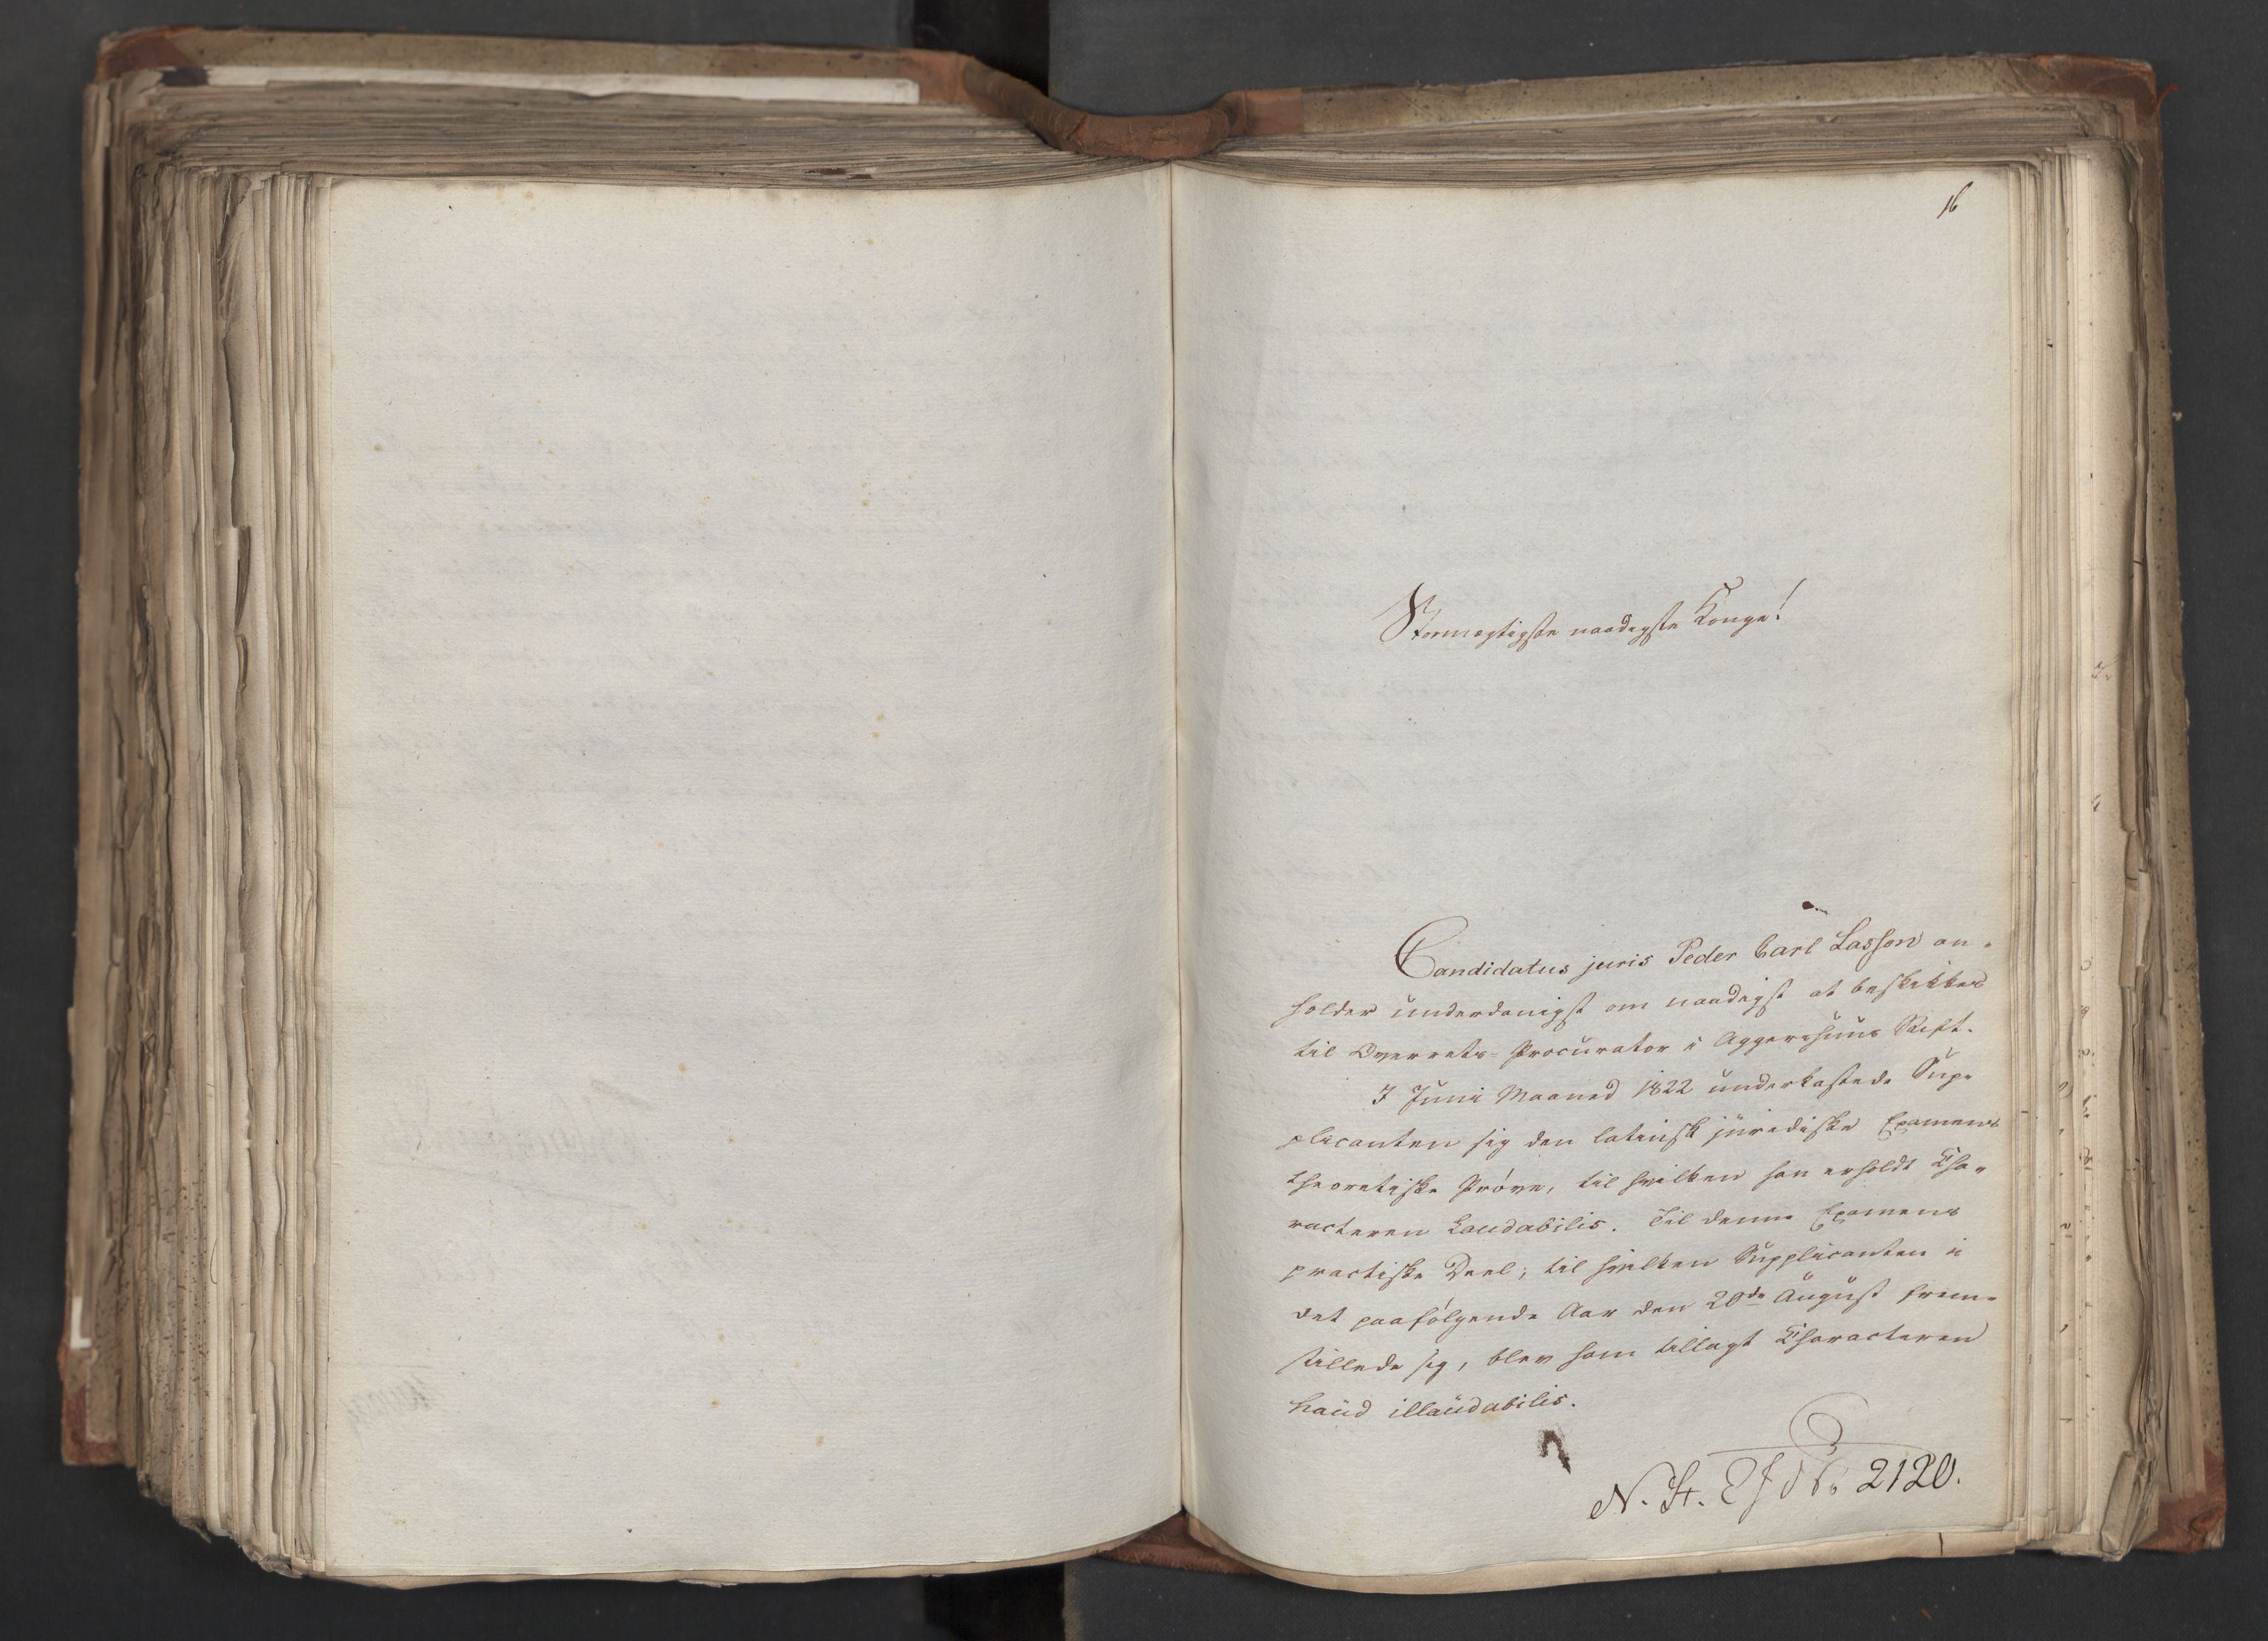 16
Stormægtigste naadigste Konge!
Candidatus juris Peder Carl Lasson an-
holder underdanigst om naadigst at beskikkes
til Overrets-Procurator i Aggershuus Stift.
I Juni Maaned 1822 underkastede Sup-
plicanten sig den latinsk juridiske Examens
theoretiske Prøve, til hvilken han erholdt Cha-
racteren Laudabilis. Til denne Examens
practiske Deel, til hvilken Supplicanten i
det paafølgende Aar den 20de August frem-
stillede sig, blev ham tillagt Characteren
haud illaudabilis.
N. St. 2120.